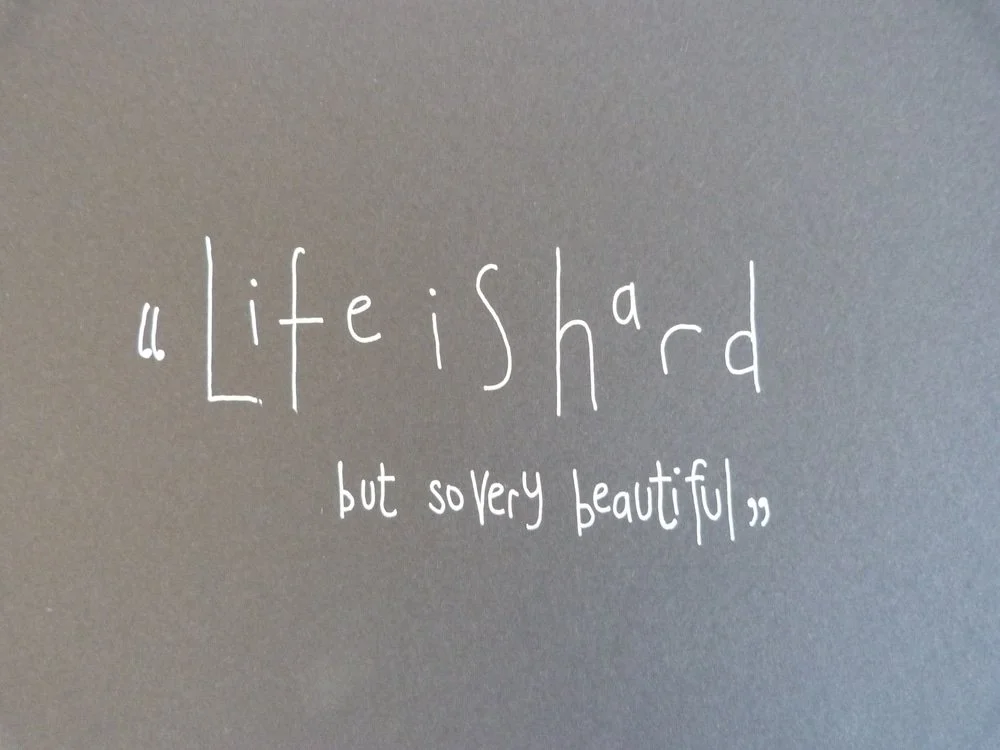 “Life is hard
but so very beautiful”